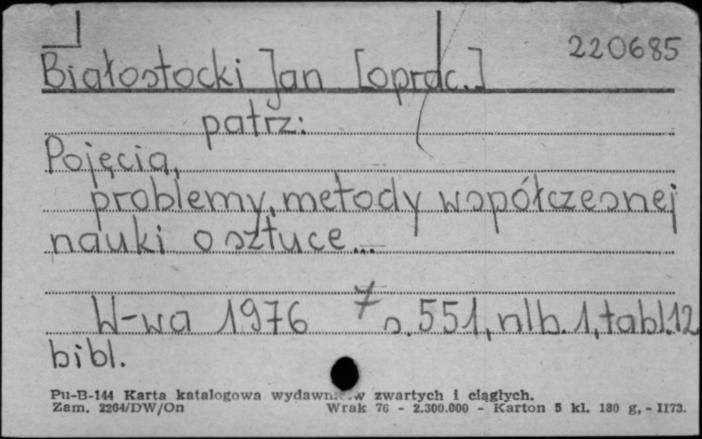 220685
Białostocki Jan [oprac.]
patrz:
Pojęcia,
problemy, metody współczesnej
nauki o sztuce...
W-wa 1976 s. 551, nlb. 1, tabl. 12
bibl.
Pu-B-144 Karta katalogowa wydawn w zwartych i ciągłych.
Zam. 2264/DW/On Wrak 76 - 2.300.000 - Karton 5 kl. 180 g, - II73.